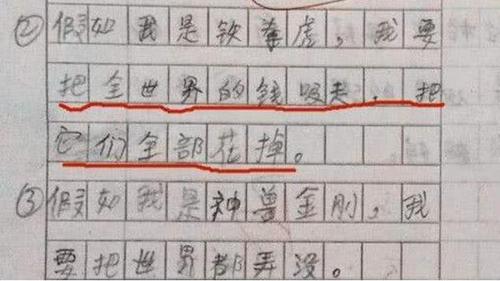 ②假如我是铁拿虎，我要
把全世界的钱吸走，把
它们全部花掉。
③假如我是神兽金刚，我
要把世界都弄没。